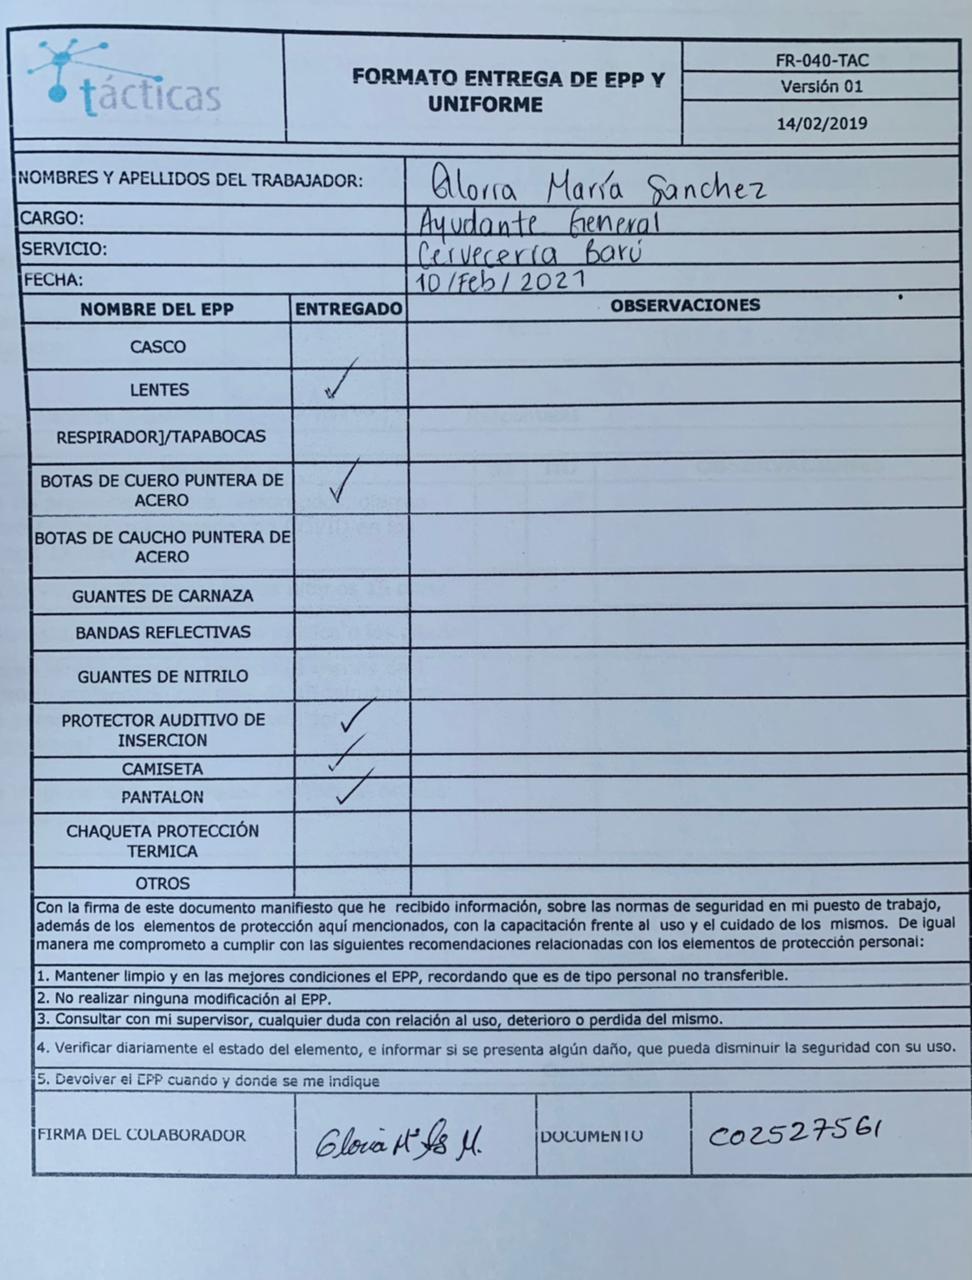 tácticas
FORMATO ENTREGA DE EPP Y
UNIFORME
FR-040-TAC
Versión 01
14/02/2019
NOMBRES Y APELLIDOS DEL TRABAJADOR: Gloria María Sanchez
CARGO: Ayudante General
SERVICIO: Cervecería Barú
FECHA: 10/Feb/2021
NOMBRE DEL EPP ENTREGADO OBSERVACIONES
CASCO
LENTES ✓
RESPIRADOR]/TAPABOCAS
BOTAS DE CUERO PUNTERA DE
ACERO ✓
BOTAS DE CAUCHO PUNTERA DE
ACERO
GUANTES DE CARNAZA
BANDAS REFLECTIVAS
GUANTES DE NITRILO
PROTECTOR AUDITIVO DE
INSERCION ✓
CAMISETA ✓
PANTALON ✓
CHAQUETA PROTECCIÓN
TERMICA
OTROS
Con la firma de este documento manifiesto que he recibido información, sobre las normas de seguridad en mi puesto de trabajo,
además de los elementos de protección aquí mencionados, con la capacitación frente al uso y el cuidado de los mismos. De igual
manera me comprometo a cumplir con las siguientes recomendaciones relacionadas con los elementos de protección personal:
1. Mantener limpio y en las mejores condiciones el EPP, recordando que es de tipo personal no transferible.
2. No realizar ninguna modificación al EPP.
3. Consultar con mi supervisor, cualquier duda con relación al uso, deterioro o perdida del mismo.
4. Verificar diariamente el estado del elemento, e informar si se presenta algún daño, que pueda disminuir la seguridad con su uso.
5. Devolver el EPP cuando y donde se me indique
FIRMA DEL COLABORADOR Gloria Mª M. DOCUMENTO CO2527561